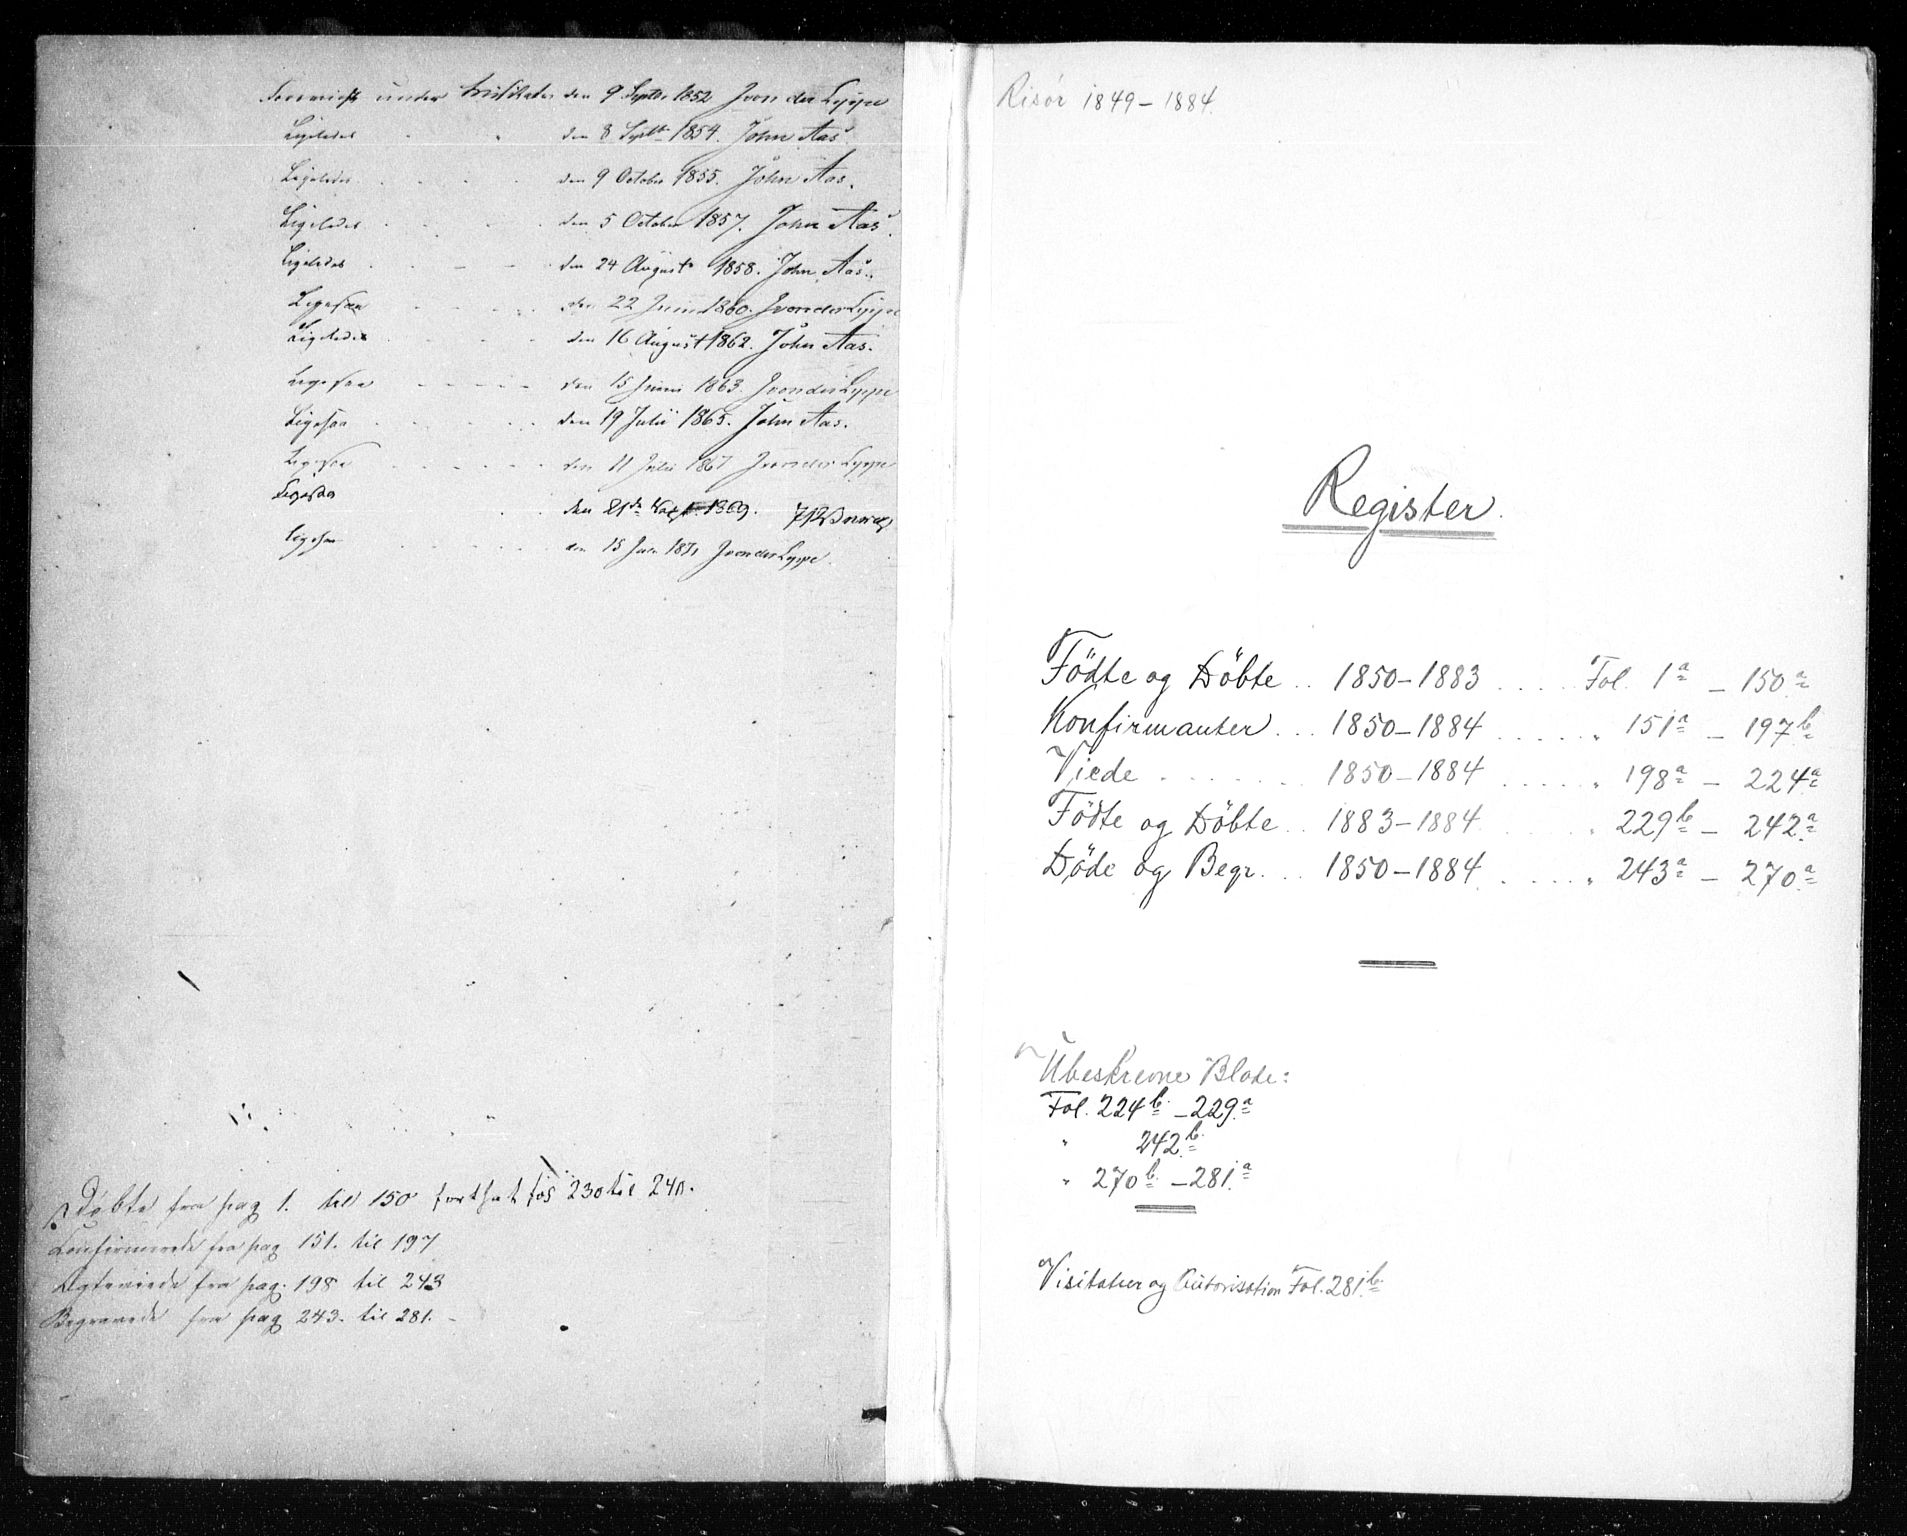 under Visitatsen den 9 Septbr 1852 J von der Lippe
Ligeledes den 8 Septbr 1854. John Aas
Ligeledes den 9 October 1855. John Aas.
Ligeledes den 5 October 1857. John Aas.
Ligeledes den 24 August 1858. John Aas.
Ligesaa den 22 Juni 1860. J von der Lippe
Ligeledes den 16 August 1862. John Aas.
Ligesaa den 15 Juni 1863. J von der Lippe
Ligesaa den 19 Julii 1865. John Aas.
Ligesaa den 11 Juli 1867 J von der Lippe
Ligesaa den 21de 1869.
Ligesaa den 15 1871 J von der Lippe.
Døbte fra pag 1. til 150 fortsat fol 230 til 240.
Confirmerede fra pag 151. til 197
Ægteviede fra pag. 198 til 243
Begravede fra pag 243. til 281.
Risør 1849-1884.
Register.
Födte og Döbte .. 1850-1883 .... Fol. 1a - 150a
Konfirmanter ... 1850-1884 ..... " 151a - 197b
Viede ....... 1850-1884 ..... " 198a - 224a
Födte og Döbte .. 1883-1884 " 229b - 242a
Döde og Begr. .. 1850-1884 ..... " 243a - 270a
Ubeskrevne Blade:
Fol. 224b - 229a
" 242b
" 270b - 281a
Visitatser og Autorisation Fol. 281b